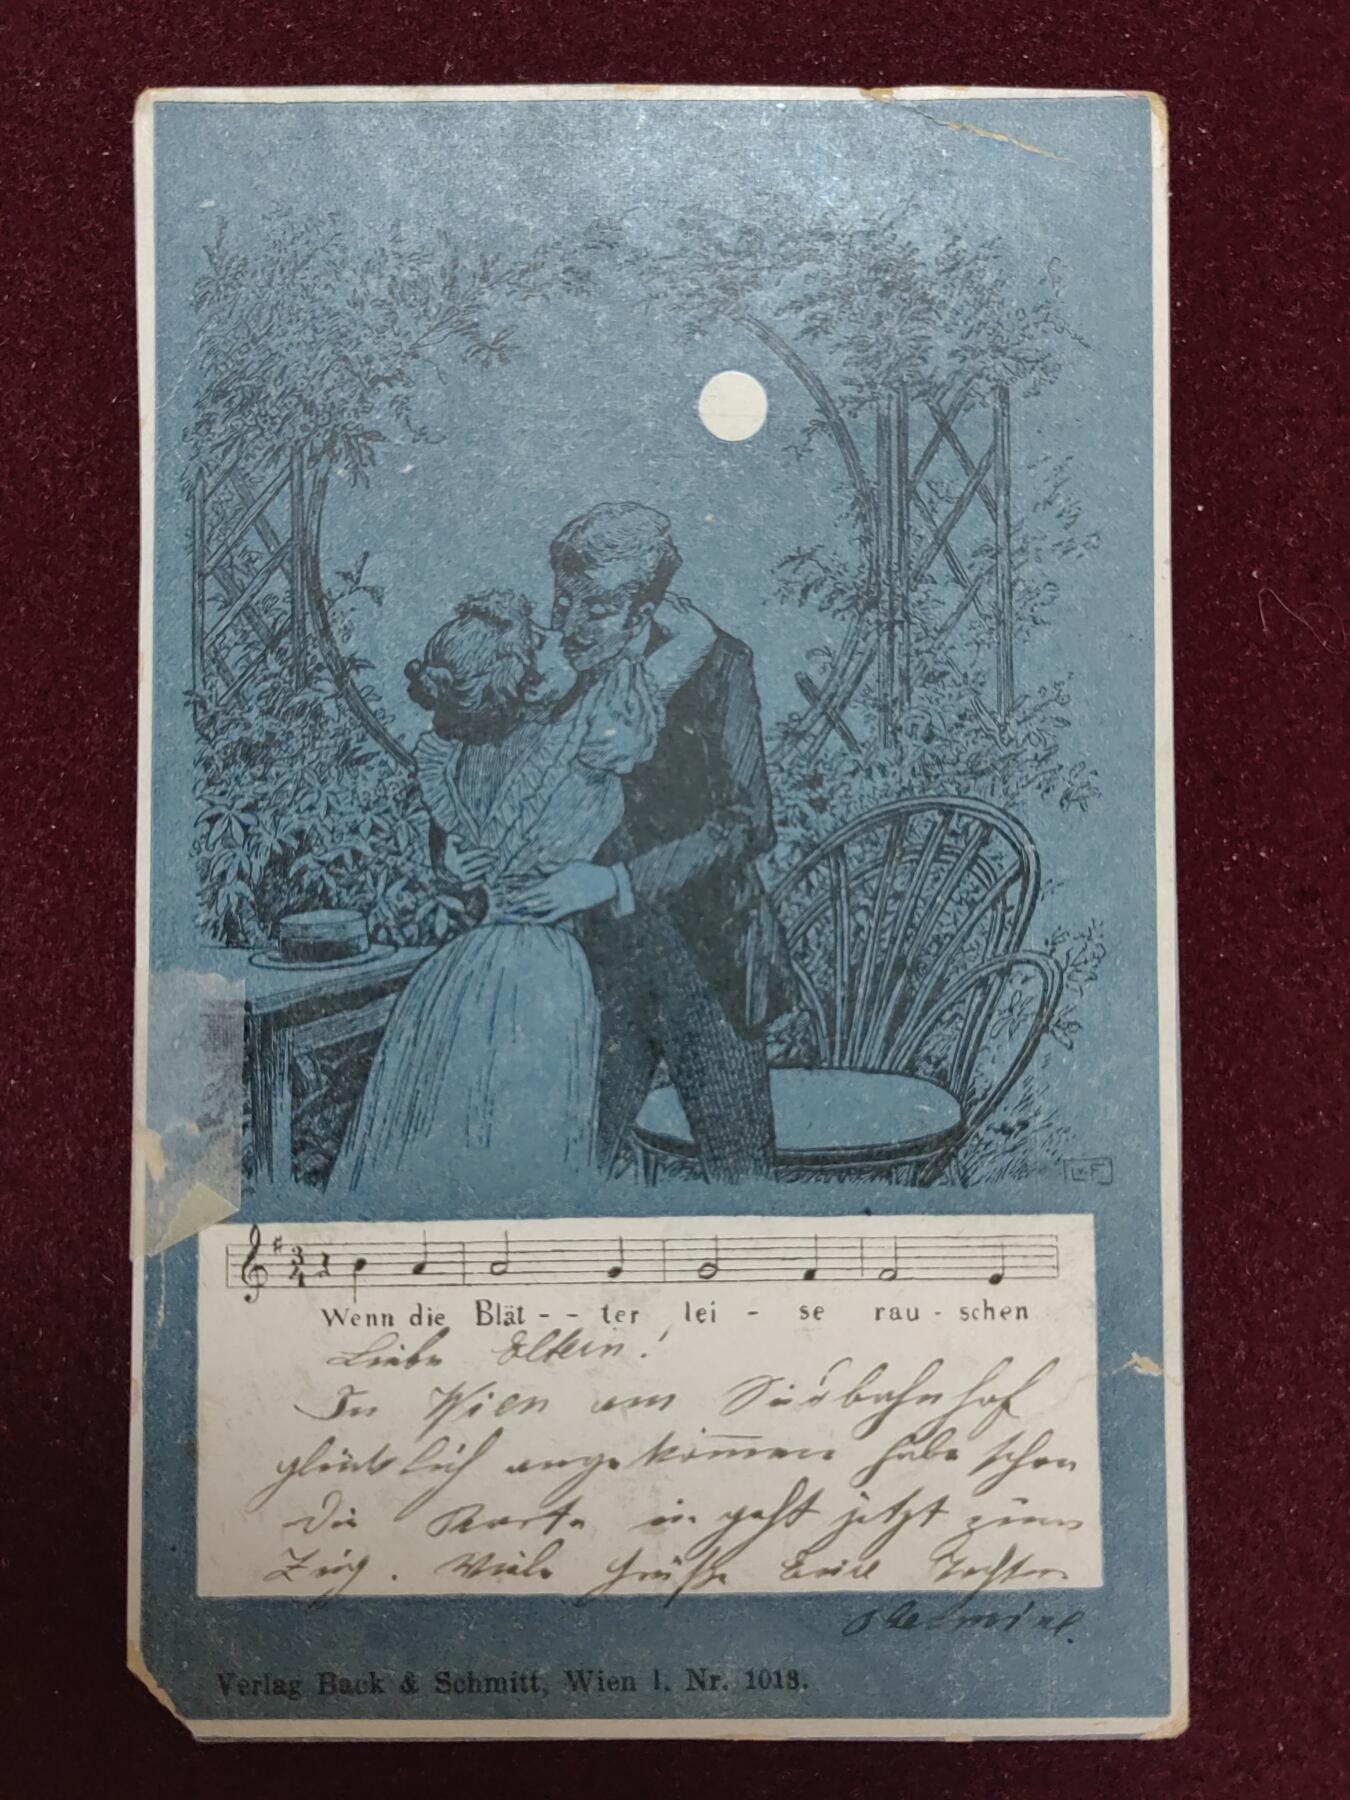 L v F
Wenn die Blät - - ter lei - se rau - schen
Liebe Eltern!
In Wien am Südbahnhof
glücklich angekommen habe schon
die Karte geht jetzt zum
Zug. Viele Grüße Eure Tochter
Hermine.
Verlag Back & Schmitt, Wien I. Nr. 1013.